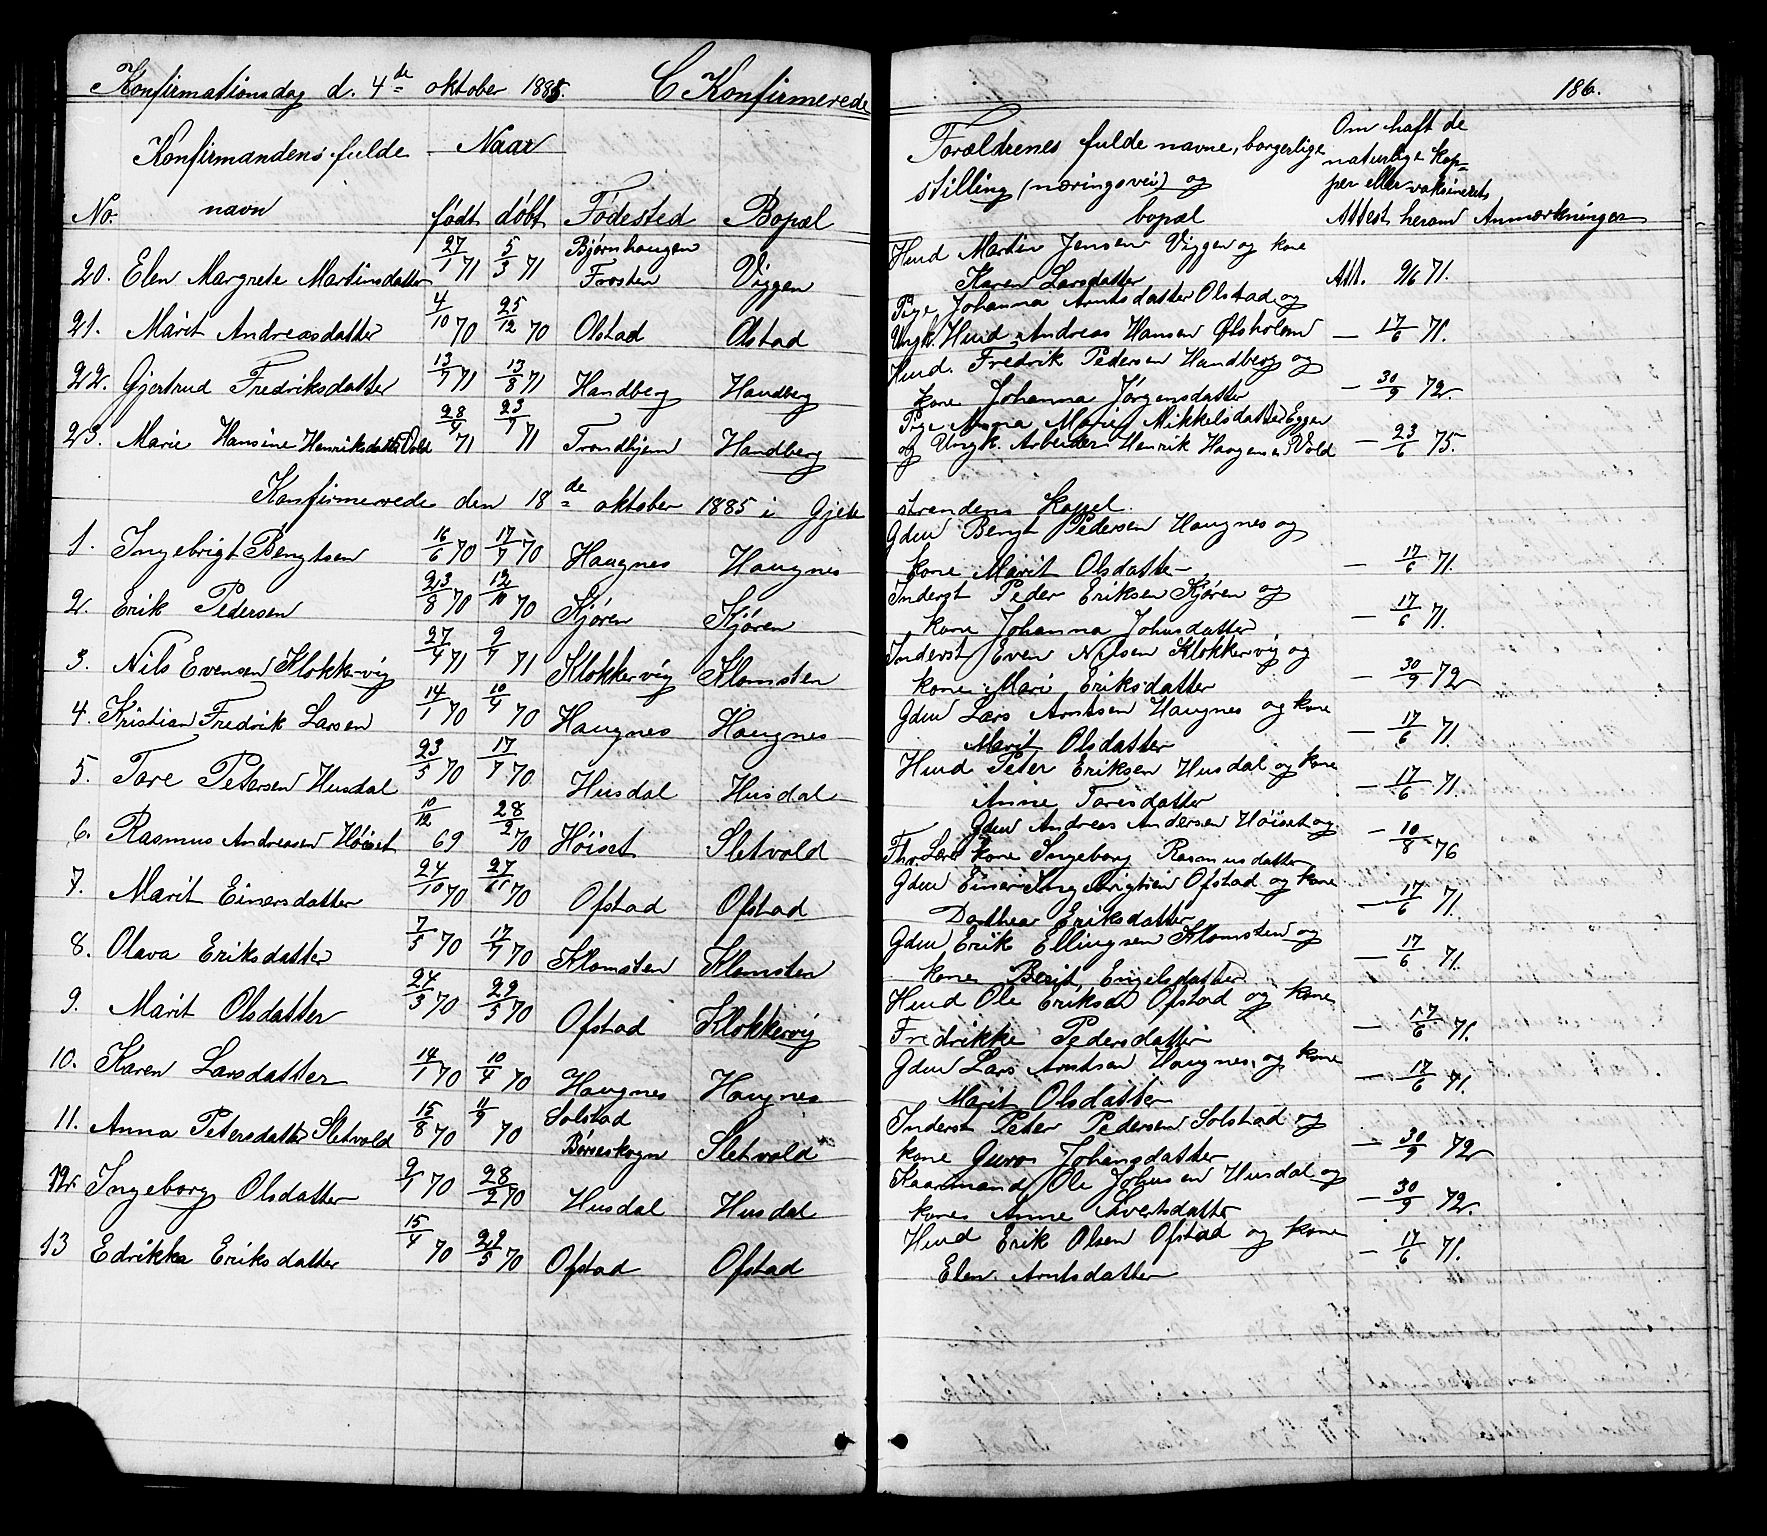 Konfirmationsdag d. 4de oktober 1885. C Konfirmerede
186.
Konfirmandens fulde navn
Naar
No. født døbt Fødested Bopæl
Forældrenes fulde navne, borgerlige
stilling (næringsvei) og
bopæl
Om haft de
naturlige kop-
per eller vaksineret
Attest herom Anmærkninger
20. Elen Margrete Martinsdatter 27/1 71 5/3 71 Bjørnhaugen Frosten Viggen
Hmd Martin Jensen Viggen og kone
Karen Larsdatter Att. 9/6 71.
21. Marit Andreasdatter 4/10 70 25/12 70 Olstad Olstad
Pige Johanna Arntsdatter Olstad og
Ungk. Hmd Andreas Hansen Øtsholem — 17/6 71.
22. Gjertrud Fredriksdatter 13/7 71 13/8 71 Handberg Handberg
Hmd. Fredrik Pedersen Handberg og
kone Johanna Jørgensdatter — 30/9 72
23. Marie Hansine Henriksdatter Vold 28/4 71 23/7 71 Trondhjem Handberg
Pige Anna Marie Mikkelsdatter Eggen
og Ungk. Arbeider Henrik Haagensen Vold — 23/6 75.
Konfirmerede den 18de oktober 1885 i Gjete
strandens Kapel.
1. Ingebrigt Bengtsen 16/6 70 17/7 70 Haugnes Haugnes
Gdm Bengt Pedersen Haugnes og
kone Marit Olsdatter — 17/6 71.
2. Erik Pedersen 23/8 70 12/10 70 Kjøren Kjøren
Inderst Peder Eriksen Kjøren og
kone Johanna Johnsdatter — 17/6 71.
3. Nils Evensen Klokkervig 27/4 71 9/7 71 Klokkervig Klomsten
Inderst Even Nilsen Klokkervig og
kone Mari Eriksdatter — 30/9 72
4. Kristian Fredrik Larsen 14/1 70 10/4 70 Haugnes Haugnes
Gdm Lars Arntsen Haugnes og kone
Marit Olsdatter — 17/6 71.
5. Tore Petersen Husdal 23/5 70 17/7 70 Husdal Husdal
Hmd Peter Eriksen Husdal og kone
Anne Toresdatter — 17/6 71.
6. Rasmus Andreasen Høiset 10/12 69 28/2 70 Høiset Sletvold
Gdm Andreas Andersen Høiset og
kone Ingeborg Rasmusdatter — 10/8 76
7. Marit Einersdatter 24/10 70 27/11 70 Ofstad Ofstad
Gdm Einer Ingebrigtsen Ofstad og kone
Dorthea Eriksdatter — 17/6 71.
8. Olava Eriksdatter 7/5 70 17/7 70 Klomsten Klomsten
Gdm Erik Ellingsen Klomsten og
kone Berit Engelsdatter — 17/6 71.
9. Marit Olsdatter 24/3 70 22/5 70 Ofstad Klokkervig
Hmd Ole Eriksen Ofstad og kone
Fredrikke Pedersdatter — 17/6 71.
10. Karen Larsdatter 14/1 70 10/4 70 Haugnes Haugnes
Gdm Lars Arntsen Haugnes og kone
Marit Olsdatter — 17/6 71.
11. Anna Petersdatter Sletvold 15/8 70 11/9 70 Solstad Børseskogn Sletvold
Inderst Peter Pedersen Solstad og
kone Guro Johansdatter — 30/9 72
12. Ingeborg Olsdatter 9/1 70 28/2 70 Husdal Husdal
Kaarmand Ole Johnsen Husdal og
kone Anne Sivertsdatter — 30/9 72.
13 Edrikka Eriksdatter 15/4 70 22/5 70 Ofstad Ofstad
Hmd Erik Olsen Ofstad og kone
Elen Arntsdatter — 17/6 71.